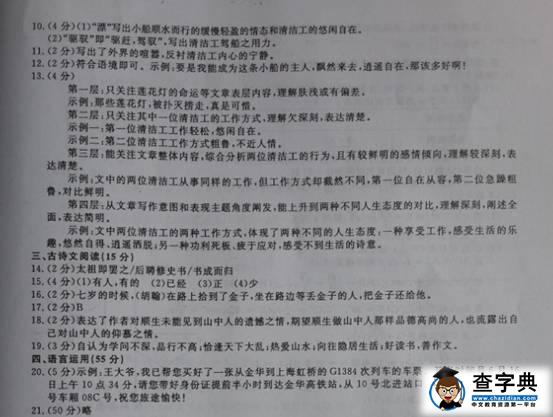 10.(4分)(1)“漂”写出小船顺水而行的缓慢轻盈的情态和清洁工的悠闲自在。
(2)“驱驭”即“驱赶,驾驭”,写出清洁工驾船之用力。
11.(2分)写出了外界的喧嚣,反衬清洁工内心的宁静。
12.(2分)符合语境即可。示例:要是我能成为这条小船的主人,飘然来去,逍遥自在,那该多好啊!
13.(4分)
第一层:只关注莲花灯的命运等文章表层内容,理解肤浅或有偏差。
示例:那些莲花灯,被扑灭捞走,真是可惜。
第二层:只关注其中一位清洁工的工作方式,理解欠深刻,表达清楚。
示例一:第一位清洁工工作轻松,悠闲自在。
示例二:第二位清洁工工作方式粗鲁,不近人情。
第三层:能关注文章整体内容,综合分析两位清洁工的行为,且有较鲜明的感情倾向,理解较深刻,表
达清楚。
示例:文中的两位清洁工从事同样的工作,但工作方式却截然不同,第一位自在从容,第二位急躁粗
鲁,对比鲜明。
第四层:从文章写作意图和表现主题角度阐发,能上升到两种不同人生态度的对比,理解深刻,阐述全
面,表达简明。
示例:文中两位清洁工的两种工作方式,体现了两种不同的人生态度:一种享受工作,感受生活的乐
趣,悠然自得,逍遥洒脱;另一种功利死板,疲于应对,感受不到生活的诗意。
三、古诗文阅读(15分)
14.(2分)太祖即罢之/后聘修史书/书成而归
15.(4分)(1)有人,有的 (2)已经 (3)正 (4)少
16.(2分)七岁的时候,(胡翰)在路上拾到了金子,坐在路边等丢金子的人,把金子还给他。
17.(2分)B
18.(2分)表达了作者对顺生未能见到山中人的遗憾之情,期望顺生做山中人那样品德高尚的人,也流露出自
己对山中人的仰慕之情。
19.(3分)自认为学问不深,品行不高;恰逢天下大乱;热爱山水;向往隐居生活;好读书,善作文。
四、语言运用(55分)
20.(5分)示例:王大爷,我已帮您买好了一张从金华到上海虹桥的G1384次列车的车票
日上午10点34分,请您带好身份证提前半小时到达金华高铁站,从10号北进站口
号车厢08C号,祝您旅途愉快!
21.(50分)略
查字典
www.chazidian.com
中文教育资源第一平台